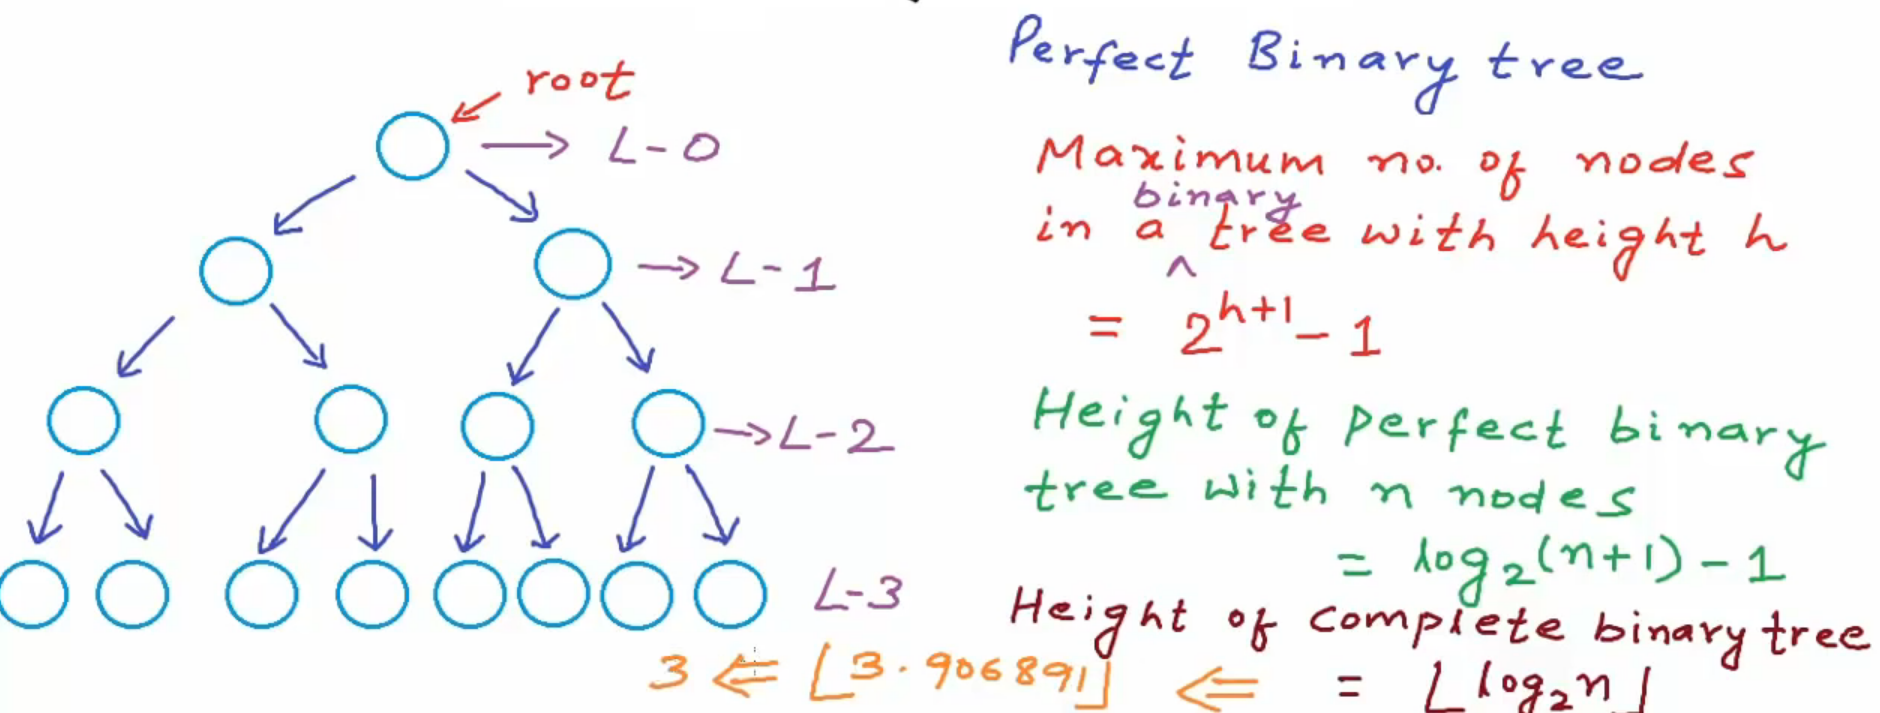 Perfect Binary tree
root
L-0
Maximum no. of nodes
binary
in a ^ tree with height h
L-1
= 2^{h+1} - 1
Height of perfect binary
L-2
tree with n nodes
= log₂(n+1) - 1
L-3
Height of complete binary tree
3 ⇐ ⌊3.906891⌋ ⇐ = ⌊log₂n⌋